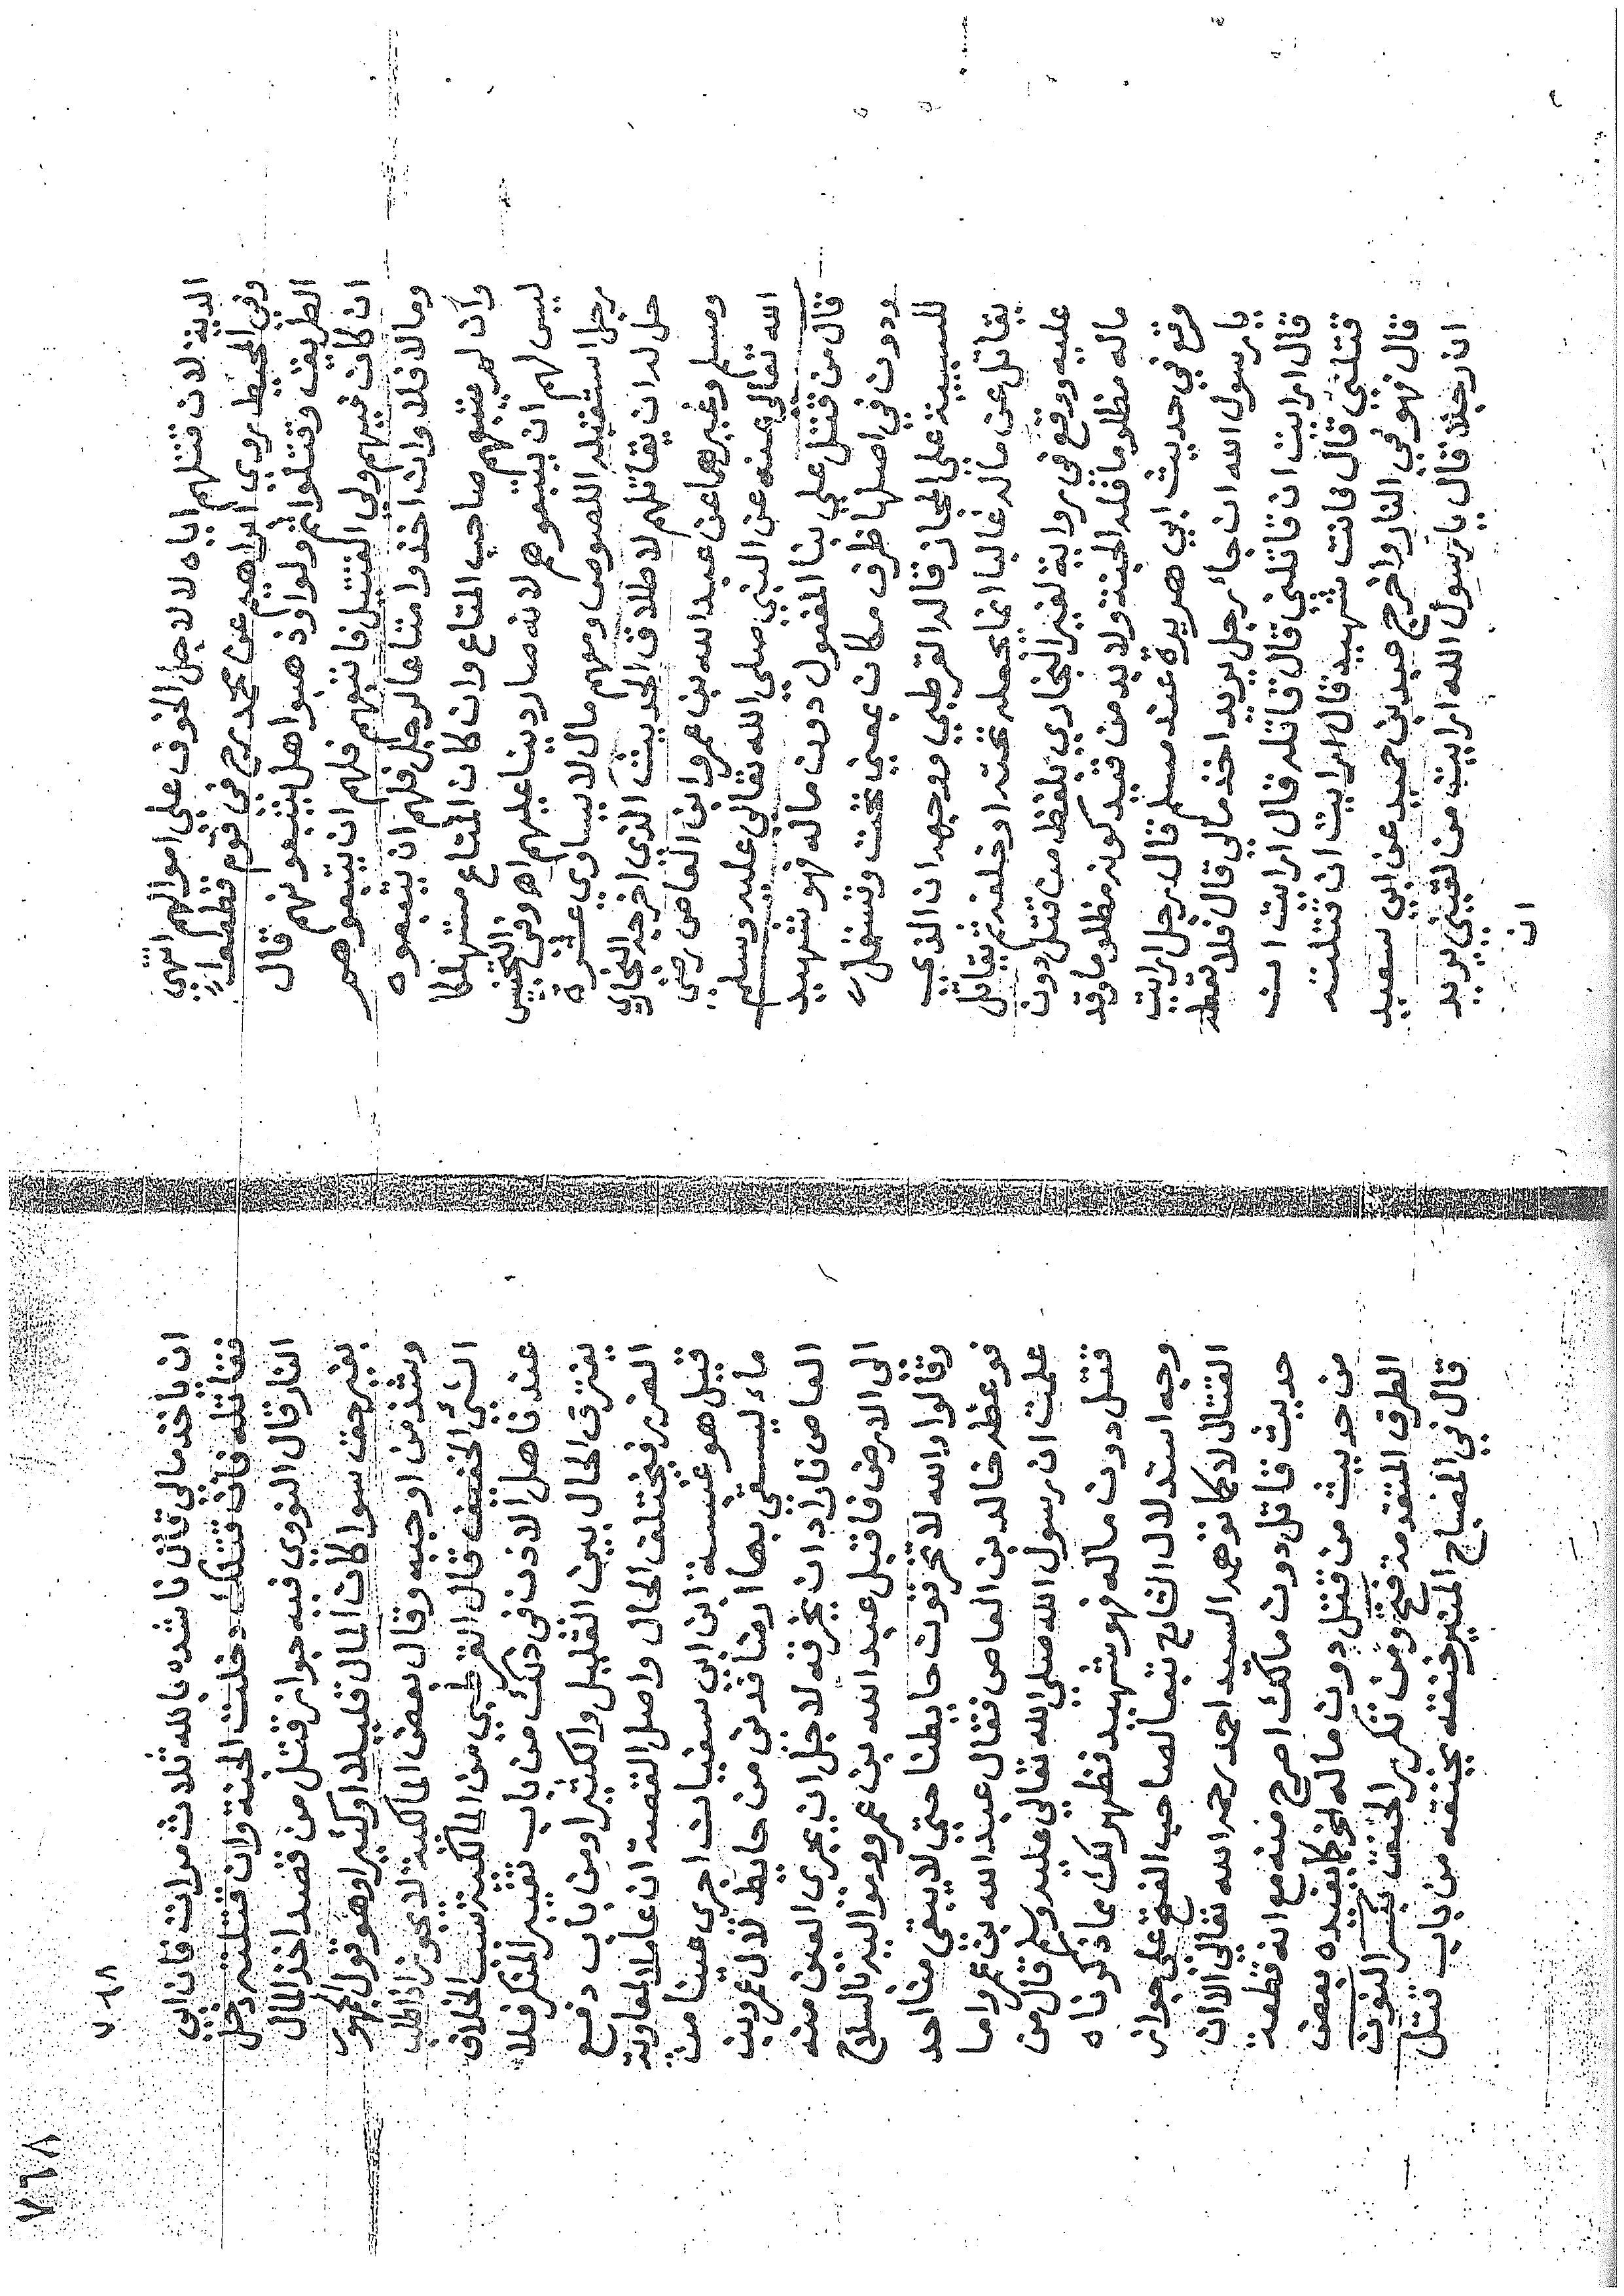 الدية لان قتلهم اياه لا لاجل الخوف على اموالهم انتهى
وفي المحيط روى ابراهيم عن محمد رح في قوم قطعوا
الطريق وقتلوا ثم ولوا وذهبوا هل يتبعونهم قال
ان كان فيهم ولي القتيل فاتبعهم فلهم ان يتبعوهم
ومالا فلا وان اخذوا متاعا لرجل فلهم ان يتبعوه
وان لم يتبعهم صاحب المتاع وان كان المتاع مستهلكا
ليس لهم ان يتبعوهم لانه صار دينا عليهم اه وفي التجنيس
رجل استقبله اللصوص ومعهم مال لا يساوي عشرة
حل له ان يقاتلهم لاطلاق الحديث الذي اخرجه البخاري
ومسلم وغيرهما عن عبد الله بن عمرو ابن العاص رضي
الله تعالى عنه عن النبي صلى الله تعالى عليه وسلم
قال من قتل علي بنا المفعول دون ماله فهو شهيد
ودون في اصلها ظرف مكان بمعنى تحت وتستعمل
للسببية على المجاز قاله القرطبي ووجهه ان الذي
يقاتل عن ماله غالبا انما يجعله تحته او خلفه ثم يقاتل
عليه ووقع في رواية لغير البخاري بلفظ من قتل دون
ماله مظلوما فله الجنة ولا بد من قيد كونه مظلوما وقد
وقع في حديث ابي هريرة عند مسلم قال رجل ارايت
يا رسول الله ان جا رجل يريد اخذ مالي قال فلا تعطه
قال ارايت ان قاتلني قال قاتله قال ارايت ان
قتلني قال فانت شهيد قال ارايت ان قتلته
قال فهو في النار واخرج عبد بن حميد عن ابي سعيد
ان رجلا قال يا رسول الله ارايت من لقيني يريد
ان
٧٦٨
٧٦٨
ان ياخذ مالي قال ناشده بالله ثلاث مرات فان ابي
فقاتله فان قتلك دخلت الجنة وان قتلته دخل
النار قال النووي فيه جواز قتل من قصد اخذ المال
بغير حق سوا كان المال قليلا او كثيرا وهو قول الجمهور
وشذ من اوجبه وقال بعض المالكية لا يجوز اذا طلب
الشي الخفيف قال القرطبي من المالكية سبب الخلاف
عندنا هل الاذن في ذلك من باب تغيير المنكر فلا
يفترق الحال بين القليل والكثير او من باب دفع
الضرر فيختلف الحال واصل القصة ان عاملا لمعاوية
قيل هو عنبسة ابن ابي سفيان اجرى عينا من
ماء ليسقي بها ارضا فدنى من حايط لال عمرو بن
العاص فاراد ان يخرقه لاجل ان يجري العين منه
الى الارض فاقبل عبد الله بن عمرو ومواليه بالسلاح
وقالوا والله لا تخرقون حايطنا حتى لا يبقى منا احد
فوعظه خالد بن العاص فقال عبد الله بن عمرو اما
علمت ان رسول الله صلى الله تعالى عليه وسلم قال من
قتل دون ماله فهو شهيد فظهر لك بما ذكرناه
وجه استدلال الشارح تبعا لصاحب الفتح على جواز
القتال لا كما توهمه السيد احمد رحمه الله تعالى الا ان
حديث قاتل دون مالك اصرح منه مع انه قطعة
من حديث من قتل دون ماله كما يفيده بعض
الطرق المتقدمة فتح ومن تكرير الخنق بكسر النون
قال في المصباح المنير خنقه يخنقه من باب قتل